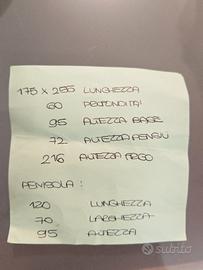 175 x 255 LUNGHEZZA
60 PROFONDITA'
95 ALTEZZA BASE
72 ALTEZZA PENSILI
216 ALTEZZA FRIGO
PENISOLA :
120 LUNGHEZZA
70 LARGHEZZA
95 ALTEZZA
subito